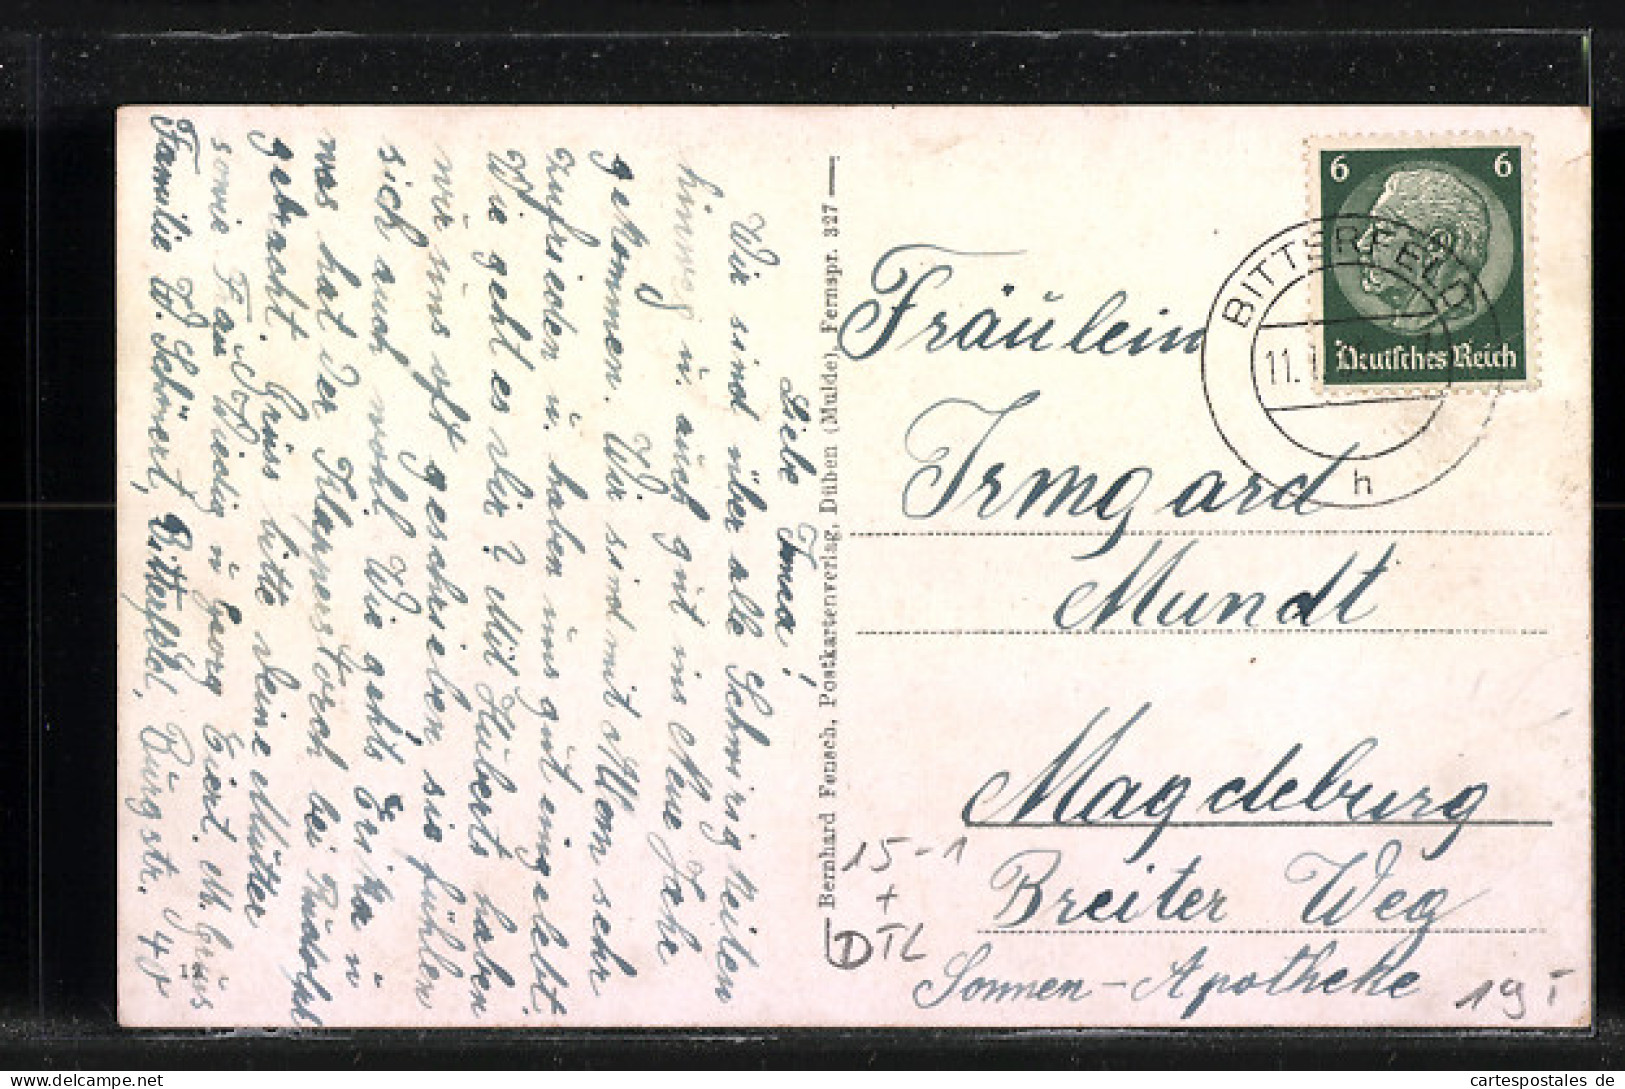 Liebe Irmea!
Wir sind über alle Schwierigkeiten
hinweg u. auch gut ins Neue Jahr
gekommen. Wir sind mit Allem sehr
zufrieden u. haben uns gut eingelebt.
Wie geht es dir? Mit Huberts haben
wir uns oft geschrieben sie fühlen
sich auch wohl. Wie gehts Erika u
was hat der Klapperstorch bei Rudolphs
gebracht. Grüss bitte deine Mutter
sowie Frau Wiedig u Georg Eiert. M. Gruss
Familie W. Schönert, Bitterfeld, Burgstr. 40
12
Bernhard Fensch, Postkartenverlag, Düben (Mulde), Fernspr. 327
6 6
Deutsches Reich
BITTERFELD
11.
h
Fräulein
Irmgard
Mundt
Magdeburg
Breiter Weg
Sonnen-Apotheke
15-1
+
DTL
19 I
cartespostales de